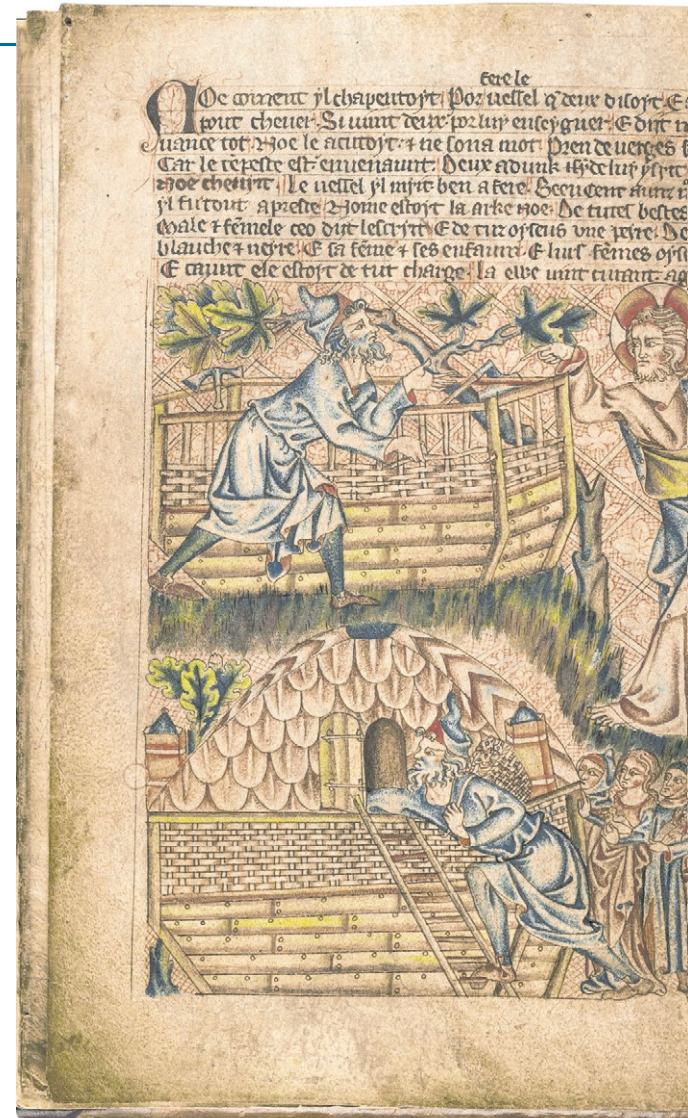 fere le
Noe coment yl chapentoyt. Por uessel q deux disoyt. E
pout cheuer. Si uunt deux por luy enseygner. E dist
uance tot. Noe le acutoyt. & ne sona mot. Pren de uerges
Car le tepeste est enuenaunt. Deux adunk
Noe cheuyt. Le uessel yl myt ben a fere.
yl fu tout apreste. Nome estoyt la arke noe. De tutes bestes
Male & femele ceo dit lescryt. E de tuz oyseus une peyre. De
blaunche & neyre. E sa feme & ses enfaunt. E lur femes
E caunt ele estoyt de tut charge. la ewe uint